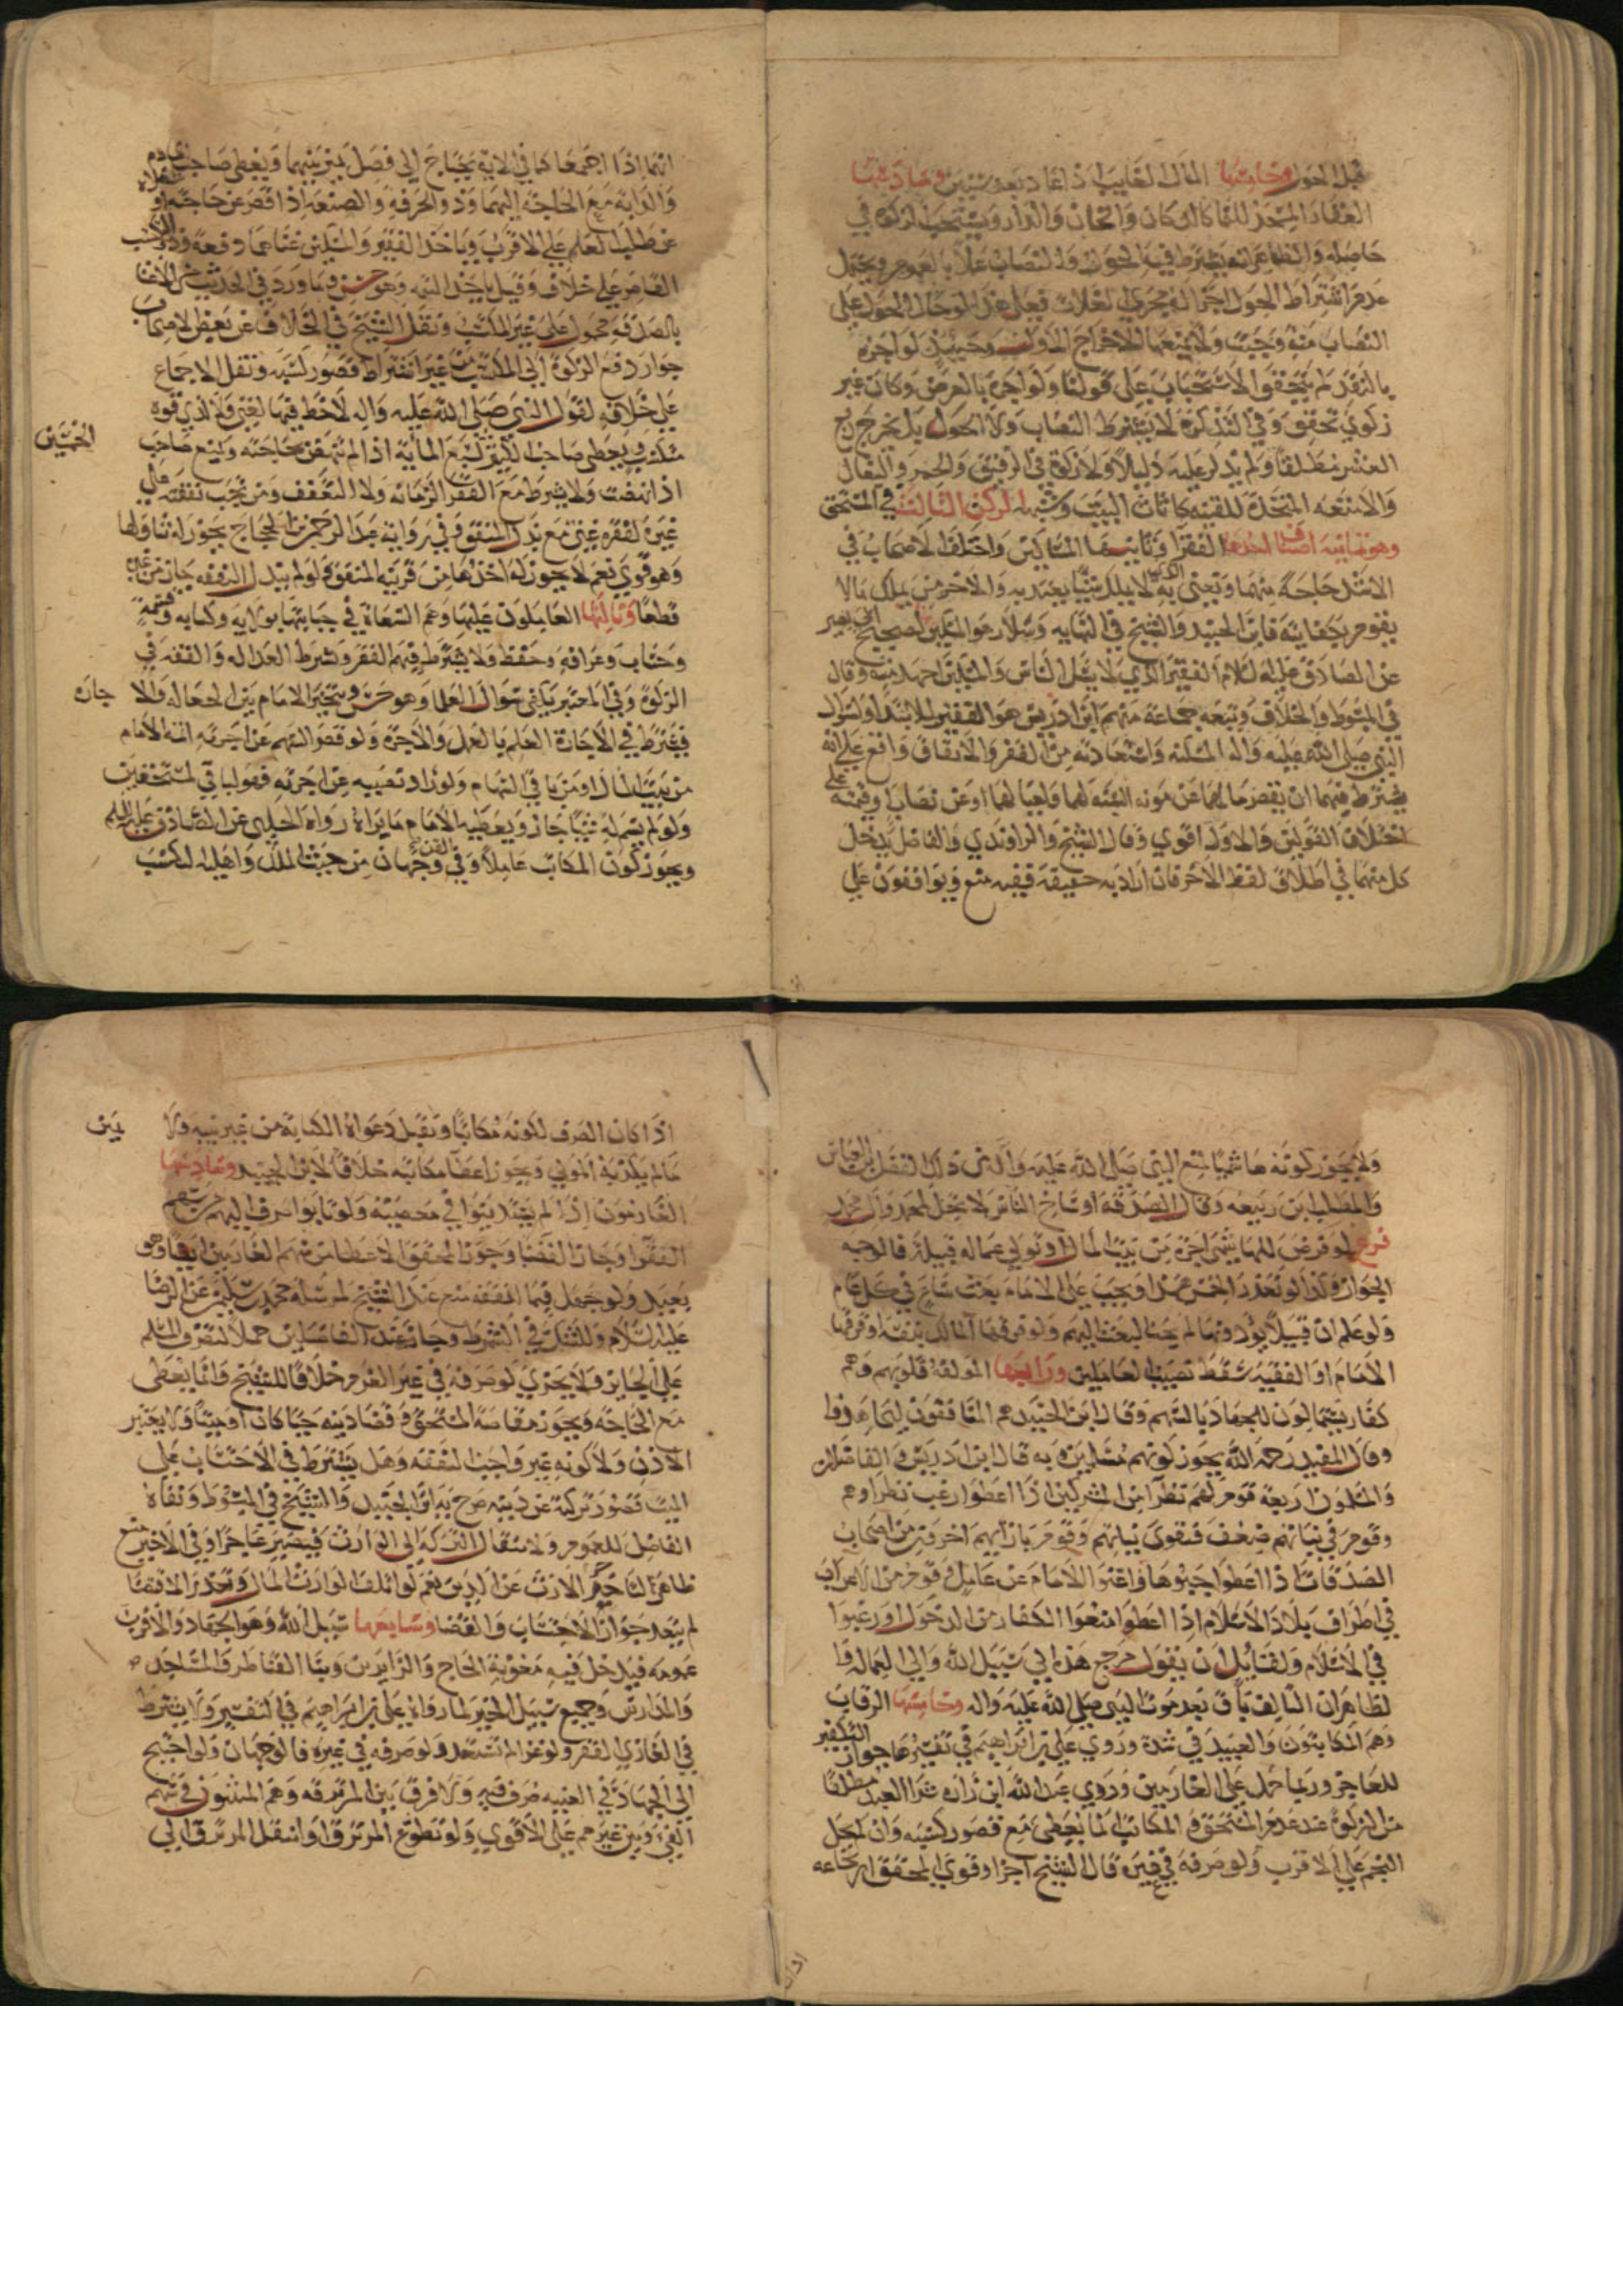 قبل الحول وخامسها المال الغايب اذا عاد بعد سنين وسادسها
العقار المتخذ للنما كالدكان والخان والدار ويستحب الزكوة في
حاصله والظاهر انه يشترط فيه الحول والنصاب عملا بالعموم ويحتمل
عدم اشتراط الحول اجراله مجرى الغلات فعلى هذا لو حال الحول على
النصاب منه وجبت ولا يمنعها الاخراج الاول وحينئذ لو اجره
بالنقد لم يتحقق الاستحباب على قولنا ولو اجره بالعرض وكان غير
زكوي تحقق وفي التذكرة لا يشترط النصاب ولا الحول بل يخرج ربع
العشر مطلقا ولم يذكر عليه دليلا ولا زكوة في الرقيق والحمر والبغال
والامتعه المتخذة للقنيه كاثاث البيت وشبهه الركن الثالث في المستحق
وهو ثمانيه اصناف احدها الفقرا وثانيها المساكين واختلف الاصحاب في
الاشد حاجة منهما ونعني به الذي لا يملك شيا يعتد به والاخر من يملك مالا
يقوم بكفايته فابن الجنيد والشيخ في النهايه وسلار هو المسكين لصحيح ابي بصير
عن الصادق عليه السلام الفقير الذي لا يسال الناس والمسكين اجهد منه وقال
في المبسوط والخلاف وتبعه جماعة منهم ابن ادريس هو الفقير للابتدا ولسؤال
النبي صلى الله عليه واله المسكنه واستعاذته من الفقر والاتفاق واقع على انه
يشترط فيهما ان يقصر مالهما عن مونه السنه لهما ولعيالهما او عن نصاب او قيمته على
اختلاف القولين والاول اقوى وقال الشيخ والراوندي والفاضل يدخل
كل منهما في اطلاق لفظ الاخر فان اراد به حقيقة ففيه منع ويوافقون على
انهما اذا اجتمعا كما في الايه يحتاج الى فصل يميز بينهما ويعطى صاحب الخادم
والدابة مع الحاجة اليهما وذو الحرفة والصنعة اذا قصر عن حاجته او
عن طلب العلم على الاقرب وياخذ الفقير والمسكين غناهما دفعة وذو التكسب
القاصر على خلاف وقيل ياخذ التتمه وهو حسن وما ورد في الحديث من الاغنا
بالصدقة محمول على غير المكتسب ونقل الشيخ في الخلاف عن بعض الاصحاب
جواز دفع الزكوة الى المكتسب من غير اشتراط قصور كسبه ونقل الاجماع
على خلافه لقول النبي صلى الله عليه واله لاحظ فيها لغني ولا لذي قوة
مكتسب ويعطى صاحب الكثير كسبع المائة اذا لم تنهض بحاجته ويمنع صاحب
الخمسين
اذا نهضت ولا يشترط مع الفقر الزمانه ولا التعفف ومن تجب نفقته على
غيره لفقره غني مع بذل المنفق وفي رواية عبد الرحمن بن الحجاج يجوز له تناولها
وهو قوي نعم لا يجوز له اخذها من قريبه المنفق ولو لم يبذل النفقه جاز من غيره
قطعا وثالثها العاملون عليها وهم السعاة في جبايتها بولايه وكتابه وقسمة
وحساب وعرافه وحفظ ولا يشترط فيهم الفقر ويشترط العداله والفقه في
الزكوة وفي المعتبر يكفي سؤال العلما وهو حسن ويتخير الامام بين الجعاله والا
جاره
فيشترط في الاجارة العلم بالعمل والاجرة ولو قصر السهم عن اجرته اتمه الامام
من بيت المال او من باقي السهام ولو زاد نصيبه عن اجرته فهو لباقي المستحقين
ولو لم يسم له شيئا جاز ويعطيه الامام ما يراه رواه الحلبي عن الصادق عليه السلم
ويجوز كون المكاتب عاملا وفي القن وجهان من حيث الملك واهليه التكسب
ولا يجوز كونه هاشميا لمنع النبي صلى الله عليه وآله من ذلك الفضل بن العباس
والمطلب بن ربيعه وقال الصدقة اوساخ الناس لا تحل لمحمد وآل محمد
فرع لو فرض للهاشمي اجرة من بيت المال او تولى عماله قبيلة فالوجه
الجواز وكذا لو تعذر الخمس هذا ويجب على الامام بعث ساع في كل عام
ولو علم ان قبيلا يؤدونها لم يجب البعث اليهم ولو فرقها المالك بنفسه او فرقها
الامام او الفقيه سقط نصيب العاملين ورابعها المولفة قلوبهم وهم
كفار يستمالون للجهاد بالسهم وقال ابن الجنيد هم المنافقون ليجاهدوا
وقال المفيد رحمه الله يجوز كونهم مسلمين وبه قال ابن ادريس والفاضلان
والمسلمون اربعة قوم لهم نظرا من المشركين اذا اعطوا رغب نظراوهم
وقوم في نياتهم ضعف فتقوى نياتهم وقوم بازائهم اخرون من اصحاب
الصدقات اذا اعطوا جبوها واغنوا الامام عن عامل وقوم من الاعراب
في اطراف بلاد الاسلام اذا اعطوا منعوا الكفار من الدخول او رغبوا
في الاسلام ولقايل ان يقول مرجع هذا الى سبيل الله والى العماله وا
لظاهر ان التالف باق بعد موت النبي صلى الله عليه واله وخامسها الرقاب
وهم المكاتبون والعبيد في شدة وروى علي بن ابراهيم في تفسيرها جواز التكفير
للعاجز وربما حمل على الغارمين وروى عبد الله ابن زراره شرا العبد مطلقا
من الزكوة عند عدم المستحق والمكاتب انما يعطى مع قصور كسبه وان لم يحل
النجم على الاقرب ولو صرفه في غيره قال الشيخ اجزا وقوى المحقق ارتجاعه
اذا كان الصرف لكونه مكاتبا وتقبل دعواه الكتابة من غير بينة ولا
يمين
ما لم يكذبه المولى ويجوز اعطا مكاتبه خلافا لابن الجنيد وسادسها
الغارمون اذا لم يستدينوا في معصيته ولو تابوا صرف اليهم من سهم
الفقرا وجاز القضا وجوز المحقق الاعطا من سهم الغارمين ايضا وهو
بعيد ولو جهل فيما انفقه منع عند الشيخ لمرسلة محمد بن سليمن عن الرضا
عليه السلام وللشك في الشرط وجاز عند الفاضلين حملا لتصرف المسلم
على الجايز ولا يجزي لو صرفه في غير الغرم خلافا للشيخ وانما يعطى
مع الحاجة ويجوز مقاصة المستحق وقضا دينه حيا كان او ميتا ولا يعتبر
الاذن ولا كونه غير واجب النفقه وهل يشترط في الاحتساب على
الميت قصور تركته عن دينه صرح به ابن الجنيد والشيخ في المبسوط ونفاه
الفاضل للعموم ولانتقال التركه الى الوارث فيصير عاجزا وفي الاخير منع
ظاهر لتاخر الارث عن الدين نعم لو اتلف الوارث المال وتعذر الاقتضا
لم يبعد جواز الاحتساب والقضا وسابعها سبيل الله وهو الجهاد والاقرب
عمومه فيدخل فيه معونة الحاج والزايرين وبنا القناطر والمساجد
والمدارس وجميع سبيل الخير لما رواه علي بن ابراهيم في التفسير ولا يشترط
في الغازي الفقر ولو غزا لم تستعد ولو صرفه في غيره فالوجهان ولو احتيج
الى الجهاد في الغيبه صرف فيه ولا فرق بين المرتزقه وهم المثبتون في سهم
الفيء وبين غيرهم على الاقوى ولو تطوع المرتزق او انتقل المرتزق الى